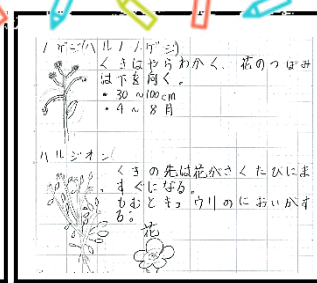 ノゲシ(ハルノノゲシ)
くきはやらわかく、花のつぼみ
は下を向く。
・30~100cm
・4~8月
ハルジオン
くきの先は花がさくたびにま
すぐになる。
もむとキュウリのにおいがす
る。
花